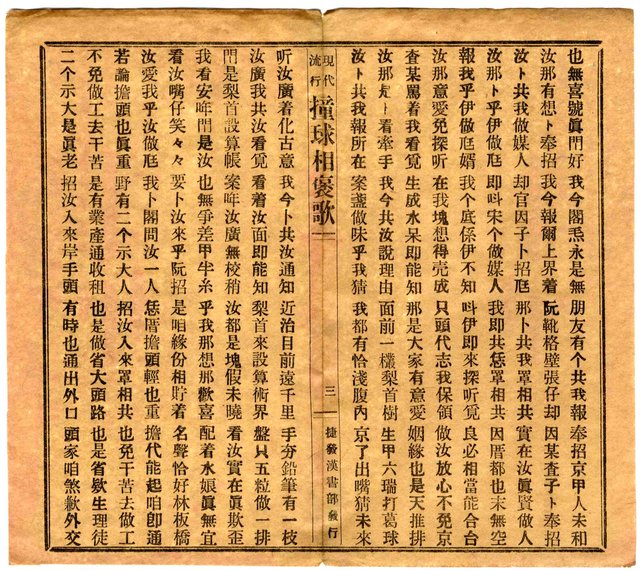 也無喜號眞門好 我今閣炁永是無 朋友有個共我報 奉招京甲人未和
汝那有想卜奉招 我今報爾上界着 阮靴格壁張仔却 因某査子卜奉招
汝卜共我做媒人 却官因子卜招尪 那卜共我罩相共 實在汝眞賢做人
汝那卜乎伊做尪 即叫宋个做媒人 我即共恁罩相共 因厝都也末無空
報我乎伊做尪婿 我个底係伊不知 叫伊即來探听覓 良必相當能合台
汝那意愛免探听 在我塊想得売成 只頭代志我保領 做汝放心不免京
査某罵着我看覓 生成水呆即能知 那是大家有意愛 姻緣也是天推排
汝那是卜看牽手 我今共汝說理由 面前一欉梨首樹 生甲六瑞打葛球
汝卜共我報所在 案盞做味乎我猜 我都有恰淺腹內 京了出嘴猜未來
現代流行 撞球相褒歌 三 捷發漢書部發行
听汝廣着化古意 我今卜共汝通知 近治目前遠千里 手夯鉛筆有一枝
汝廣我共汝看覓 看着汝面即能知 梨首來設算術界 盤只五粒做一排
門是梨首設算帳 案咋汝廣無校稍 汝都是塊假未曉 看汝實在眞欺歪
我看安咋門是汝 也無爭差甲牛糸 乎我那想那歡喜 配着水娘眞無宜
看汝嘴仔笑々々 要卜汝來乎阮招 是咱緣份相貯着 名聲恰好林板橋
汝愛我乎汝做尪 我卜閣問汝一人 恁厝擔頭輕也重 擔代能起咱即通
若論擔頭也眞重 野有二个示大人 招汝入來罩相共 也免干苦去做工
不免做工去干苦 是有業產通收租 也是做省大頭路 也是省欵生理徒
二个示大是眞老 招汝入來岸手頭 有時也通出外口 頭家咱煞歉外交